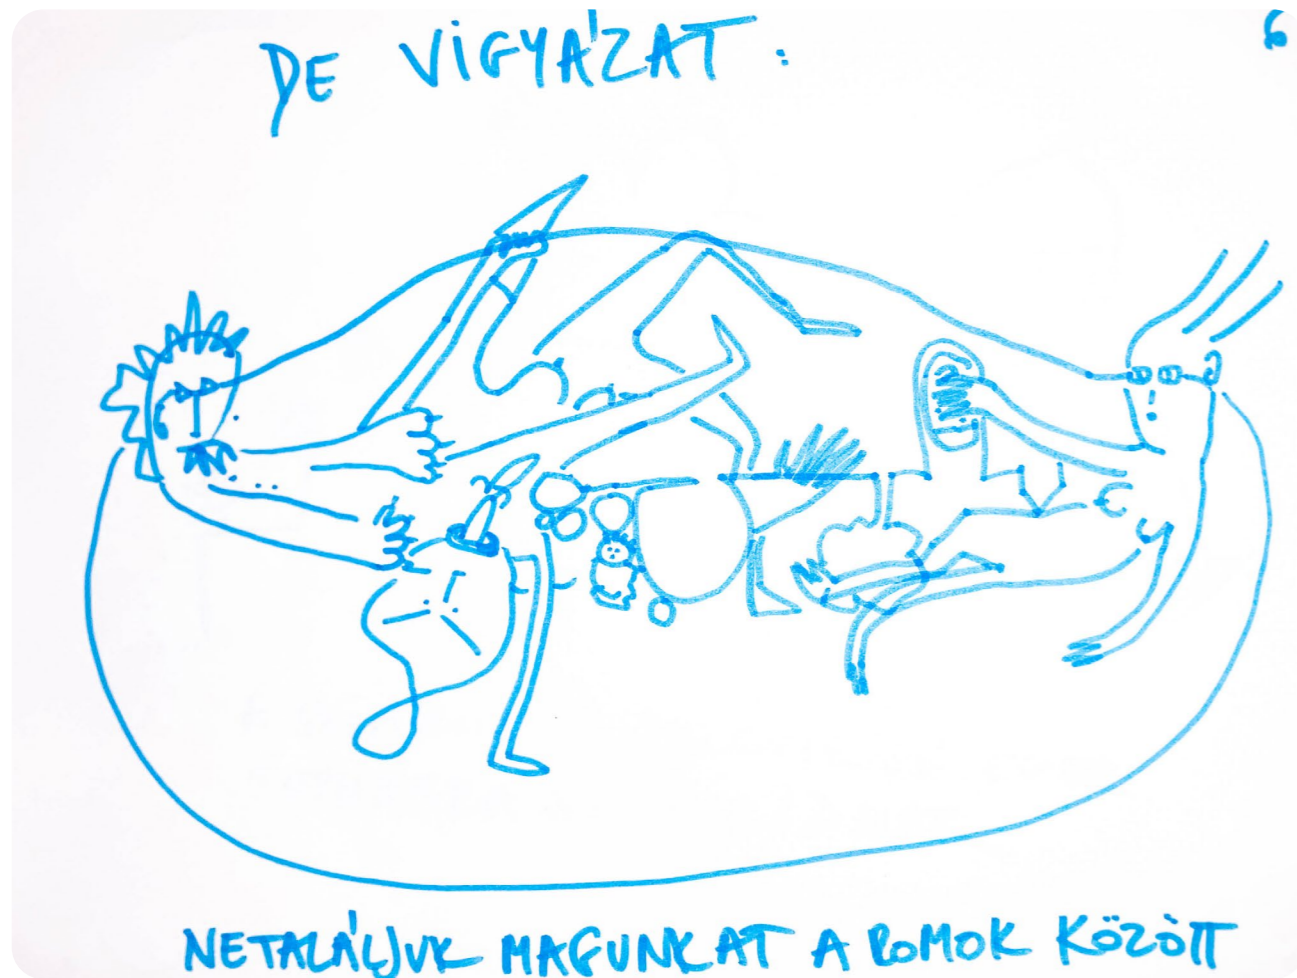 DE VIGYÁZAT:
6
NETALÁLJUK MAGUNKAT A ROMOK KÖZÖTT